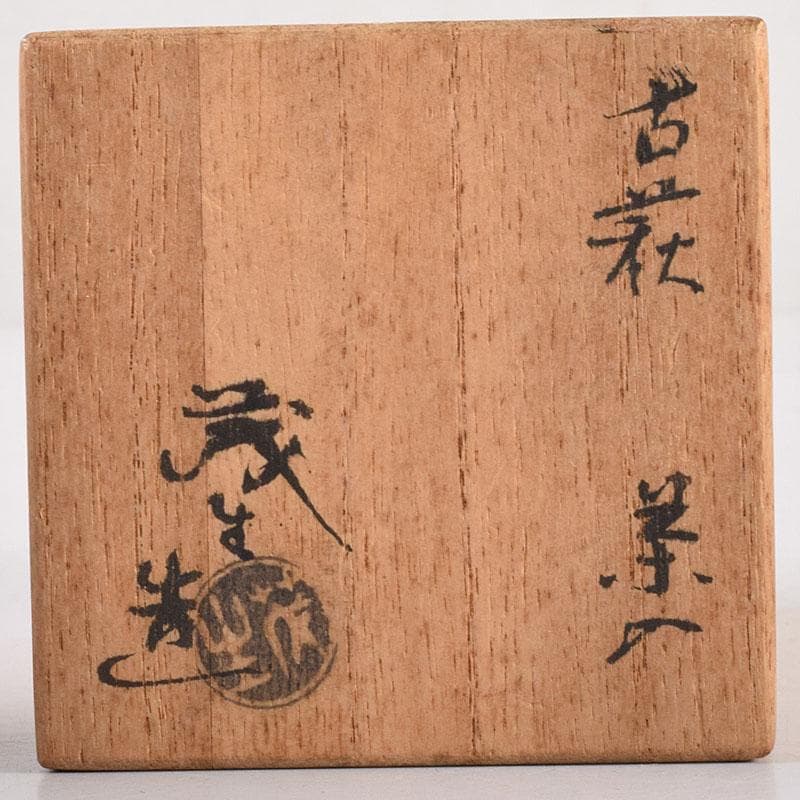 古萩
茶入
茂生造